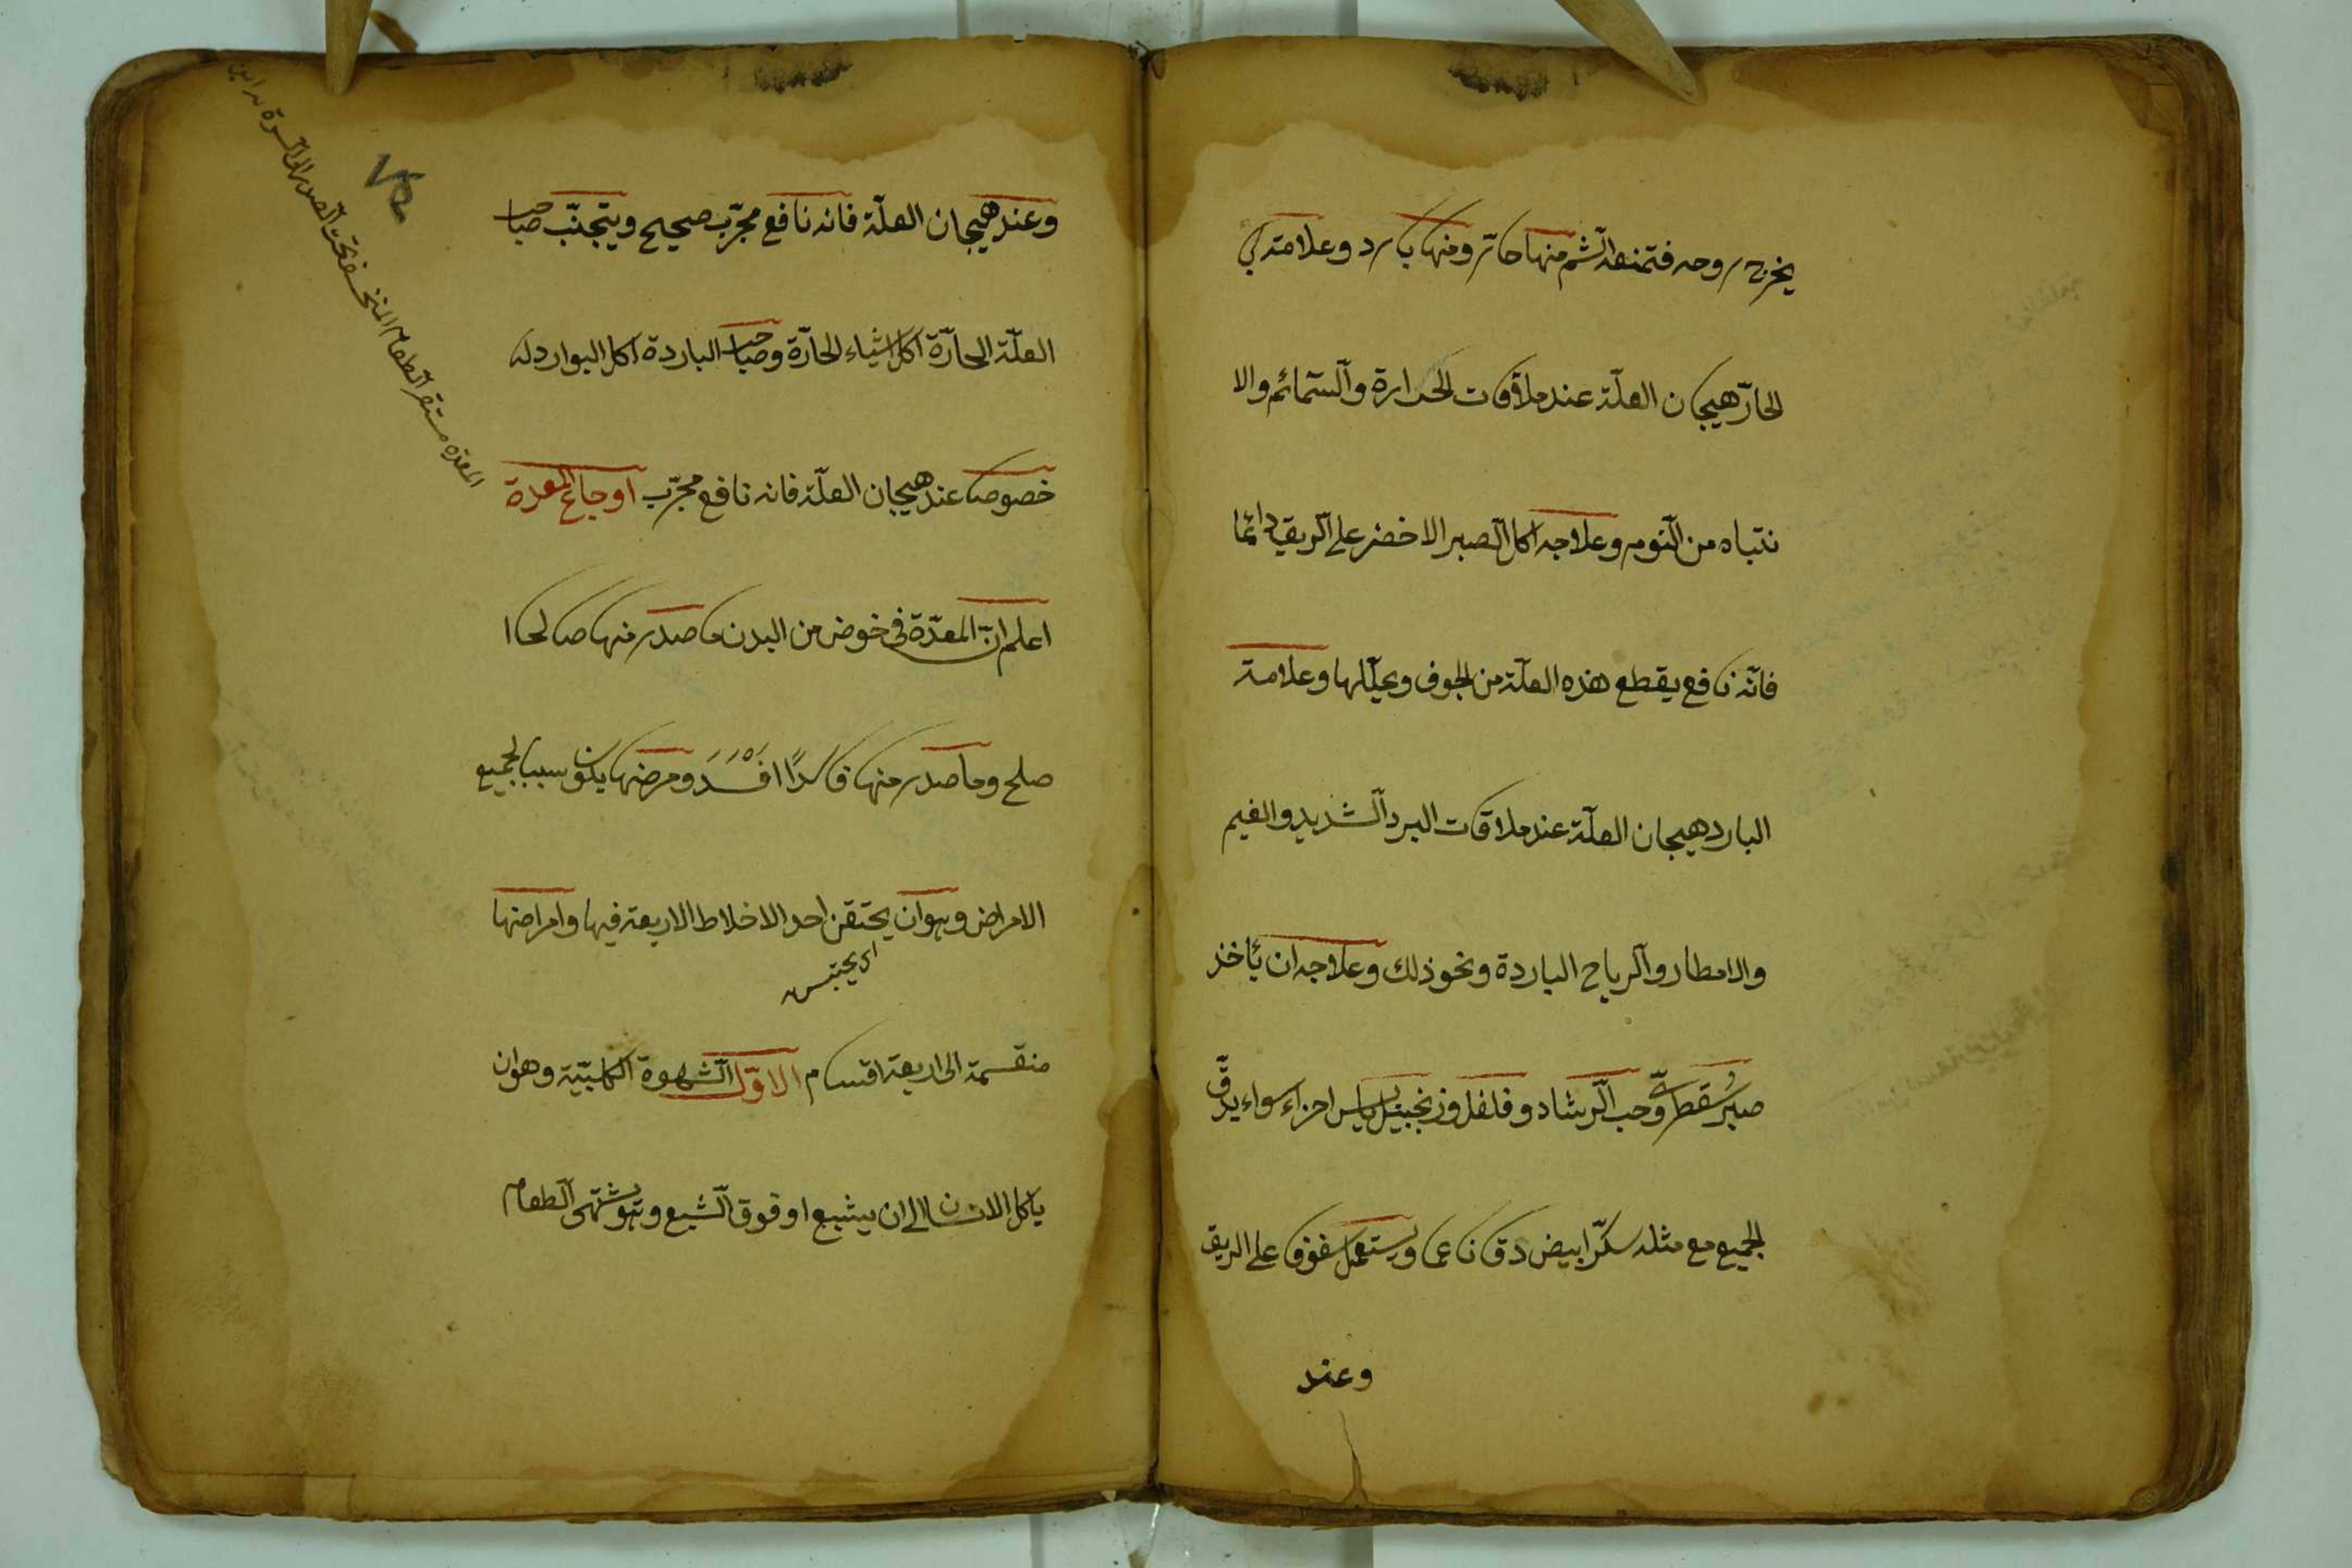 يخرج روحه فتمنعه الشم منها حار ومنها بارد وعلامته في
الحارّ هيجان العلّة عند ملاقات الحرارة والسّمائم والا
نتباه من النّوم وعلاجه اكل الصبر الاخضر على الريق دائما
فانّه نافع يقطع هذه العلّة من الجوف ويحلّلها وعلامة
البارد هيجان العلّة عند ملاقات البرد الشديد والغيم
والامطار والرياح الباردة ونحو ذلك وعلاجه ان يأخذ
صبر سقطريّ وحب الرشاد وفلفل وزنجبيل يابس اجزاء سواء يدقّ
الجميع مع مثله سكّر ابيض دقا ناعما ويستعمل سفوفا على الريق
وعند
وعند هيجان العلّة فانه نافع مجرّب صحيح ويتجنّب صاحب
العلّة الحارّة اكل اشياء الحارّة وصاحب الباردة اكل البوارد له
خصوصا عند هيجان العلّة فانه نافع مجرّب اوجاع المعدة
اعلم انّ المعدّة فى خوض من البدن ما صدر منها صالحا ا
صلح وما صدر منها فاسدًا افْسَدَ ومرضها يكون سببا لجميع
الامراض وهو ان يحتقن احد الاخلاط الاربعة فيها وامراضها
اى يحتبس
منقسمة الى اربعة اقسام الاوّل الشّهوة الكلبيّة وهو ان
ياكل الانسان الى ان يشبع او فوق الشبع وهو يشتهى الطعام
المعدة مستقر الطعام المنخسفة تحت الصدر الى السرة
٧٥